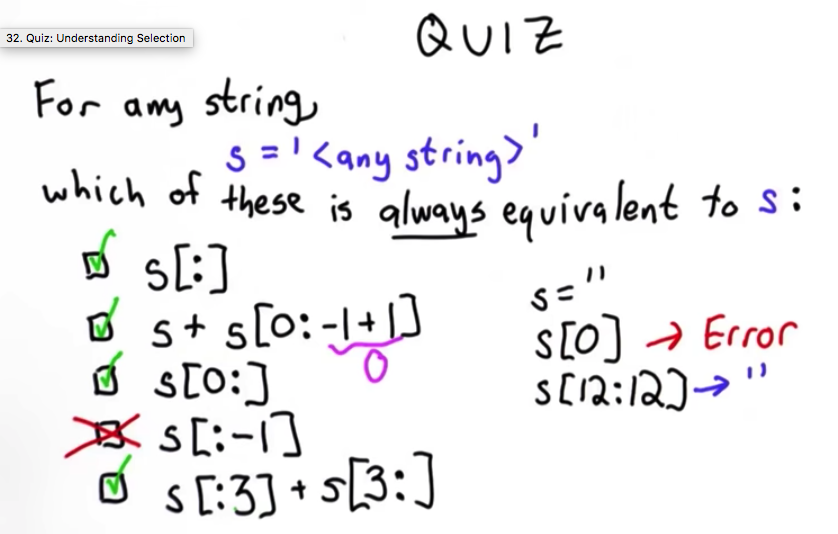 QUIZ
32. Quiz: Understanding Selection
For any string,
s = '<any string>'
which of these is always equivalent to s:
s[:]
s + s[0:-1+1]
0
s[0:]
s[:-1]
s[:3] + s[3:]
s = ''
s[0] → Error
s[12:12] → ''